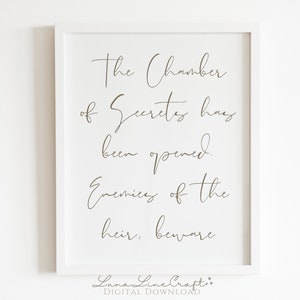 The Chamber
of Secrets has
been opened.
Enemies of the
heir, beware
LunaLineCraft
DIGITAL DOWNLOAD